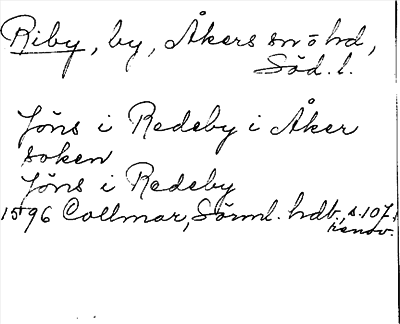 Riby, by, Åkers sn o hd,
Söd. l.
Jöns i Redeby i Åker
soken
Jöns i Redeby
1596 Collmar, Sörml. hdb., s. 107,
renov.